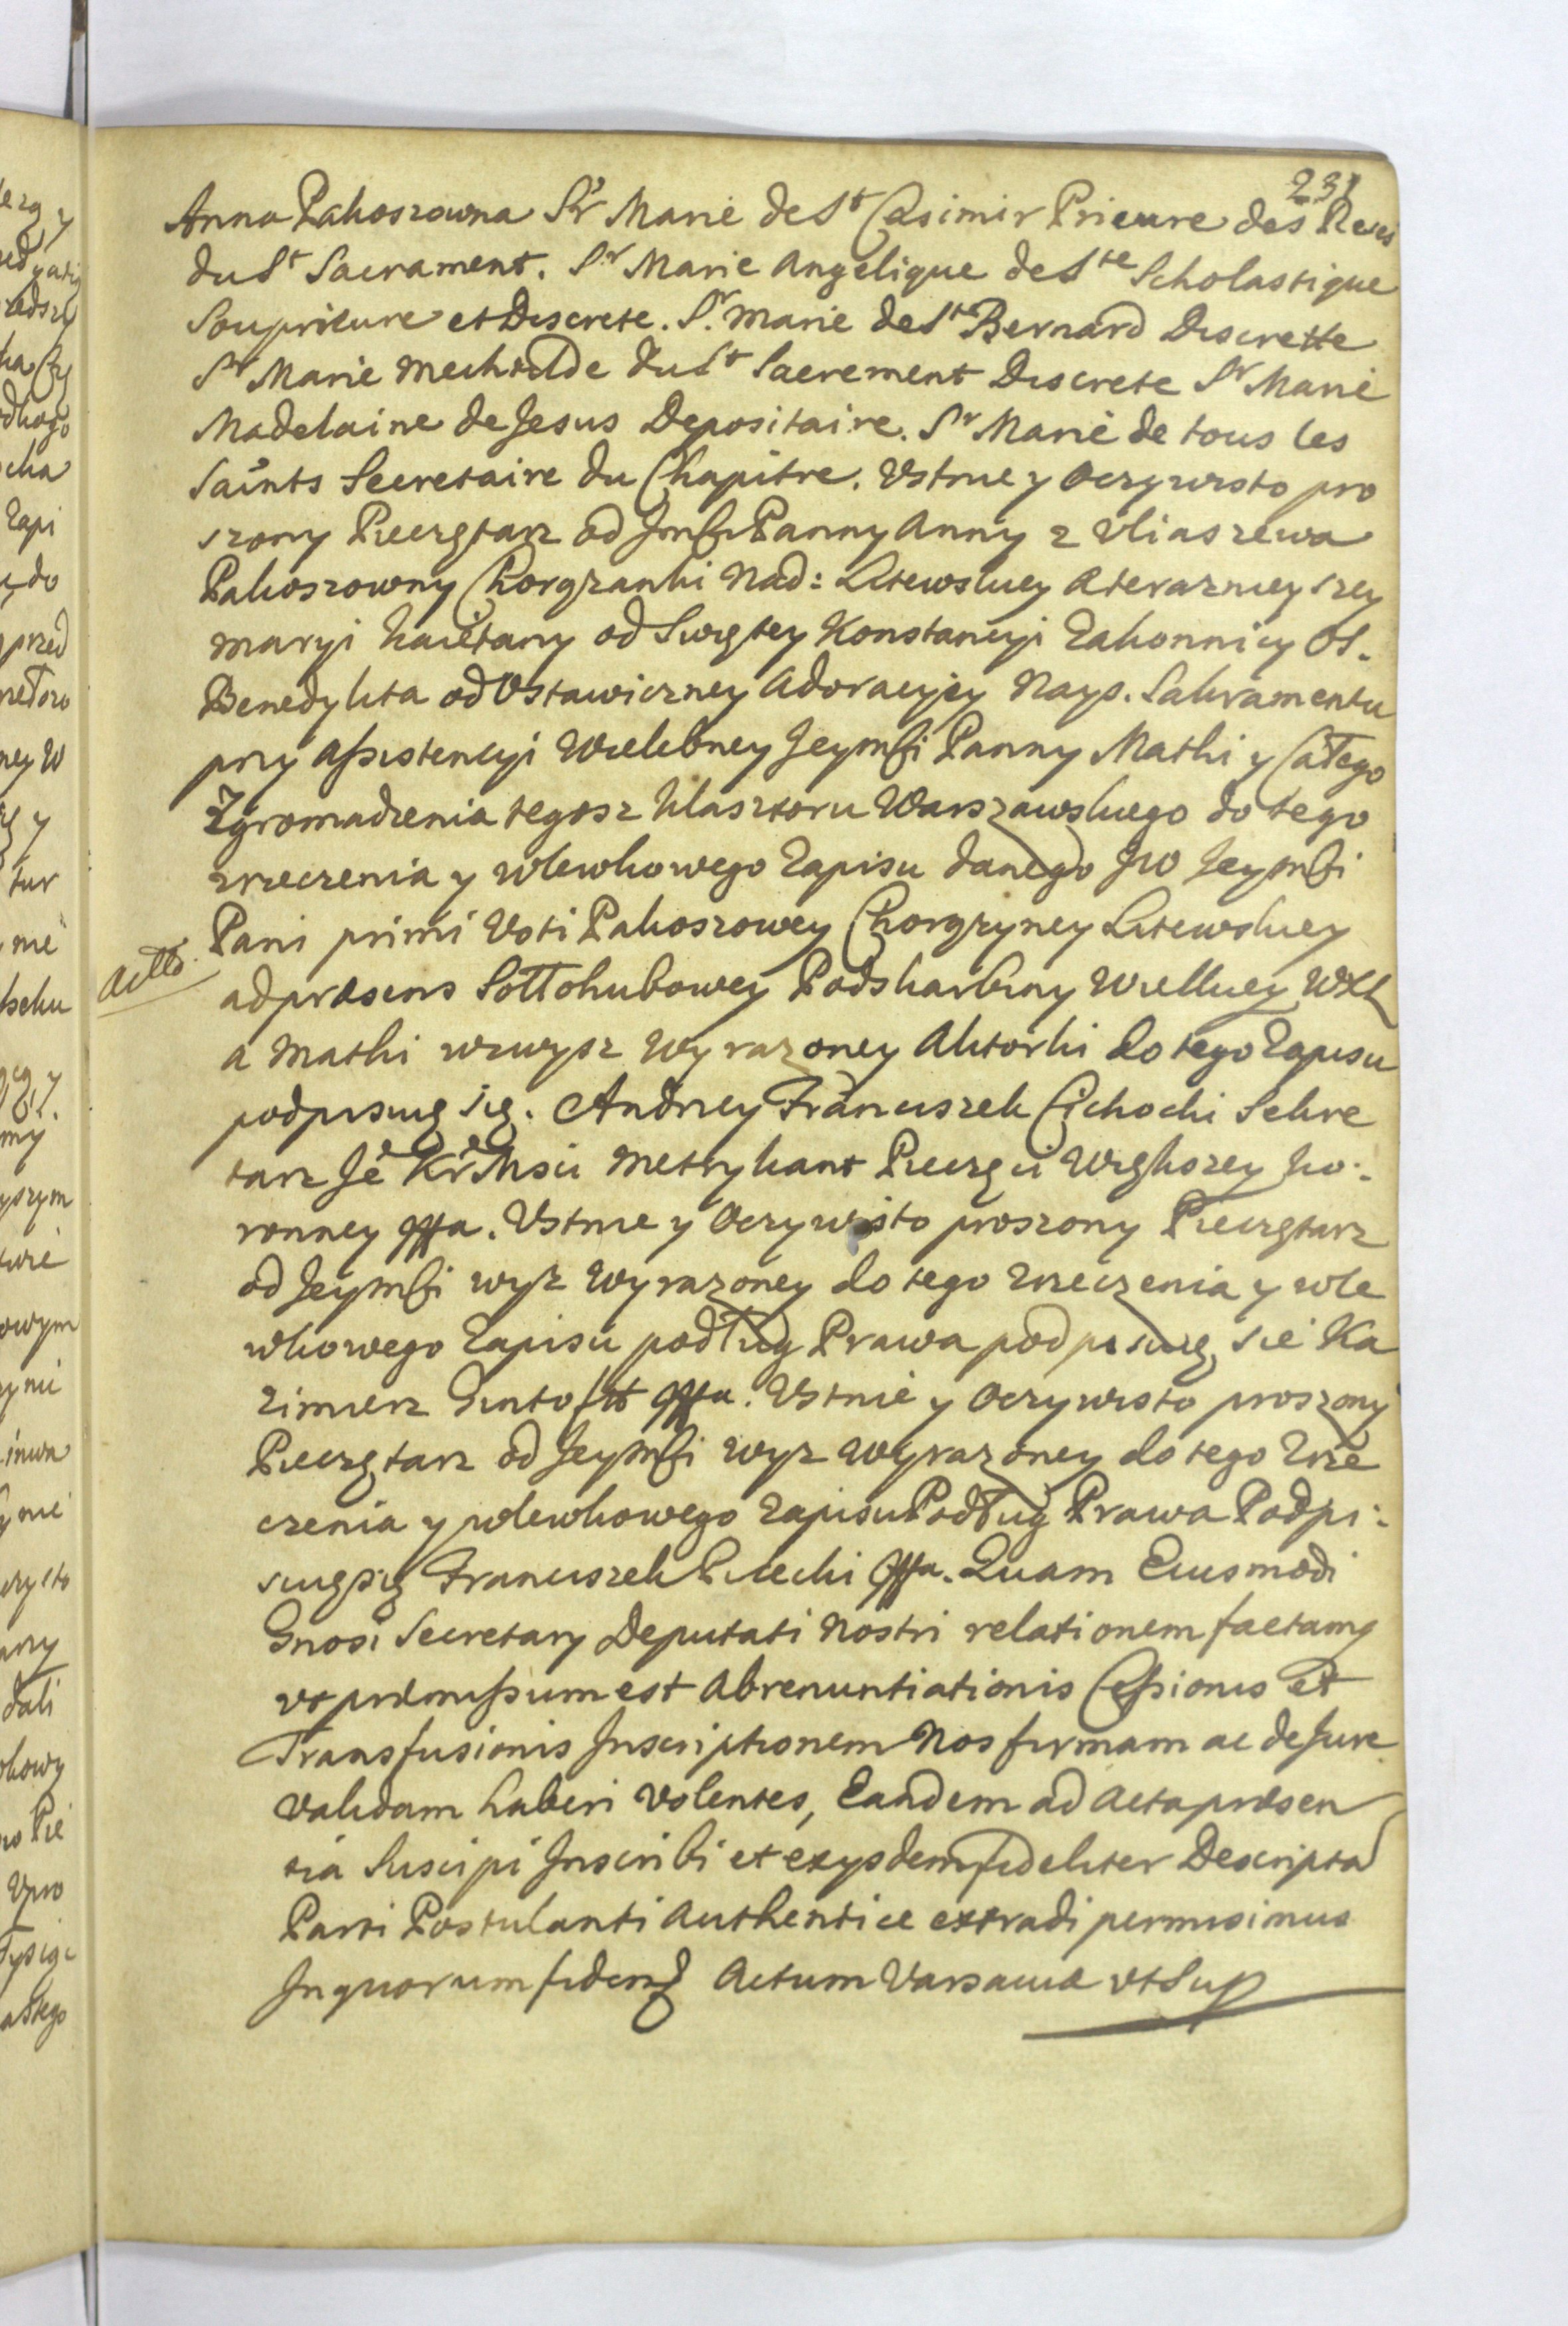 231
Anna Pakoszowna Sr Marie de St Casimir Prieure des Rses
du St Sacrament. Sr Marie Angelique de Ste Scholastique
Souprieure et Discrete. Sr. Marie de St Bernard Discrette
Sr Marie Mechtilde du St Sacrement Discrete Sr Marie
Madelaine de Jesus Depositaire. Sr Marie de tous les
Saints Secretaire du Chapitre. Vstnie y Oczywisto pro
szony Pieczętarz od Panny Anny z Uliaszewa
Pakoszowny Chorązanki Nad: Litewskiey a teraznieyszey
Maryi Kaietany od Swiętey Konstancyi Zakonnicy OS.
Benedykta od Ustawiczney Adoracyiey Nays. Sakramentu
przy Assistencyi Wielebney Jeymsci Panny Matki y Całego
Zgromadzenia tegosz Klasztoru Warszawskiego do tego
zrzeczenia y wlewkowego Zapisu danego JW Jeymsci
Pani primi Voti Pakoszowey Chorązyney Litewskiey
adto
ad præsens Sołłohubowey Podskarbiny Wielkiey WXL
a Matki wzwysz Wyrazoney Aktorki do tego Zapisu
podpisuię się. Andrzey Franciszek Cichocki Sekre
tarz Je Kr Msci Metrykant Pieczęci Większey ko:
ronney mpp. Vstnie y Oczywisto proszony Pieczętarz
od Jeymsci wysz Wyrazoney do tego zrzeczenia y wle
wkowego Zapisu podług Prawa podpisuię sie Ka
zimierz Gintofft mpp. Vstnie y Oczywisto proszony
Pieczętarz od Jeymsci wyz wyrazoney do tego Zrze
czenia y wlewkowego zapisu Podług Prawa Podpi:
suię się Franciszek Pilecki mpp. Quam Eiusmodi
Gnosi Secretary Deputati Nostri relationem factamq
vt præmissum est Abrenuntiationis Cessionis et
Transfusionis Inscriptionem Nos firmam ac de Jure
validam haberi volentes, Eandem ad Acta præsen
tia Suscipi Inscribi et exysdem fideliter Descripta
Parti Postulanti Authentice extradi permisimus
In quorum fidem Actum Varsaviæ vt Sup